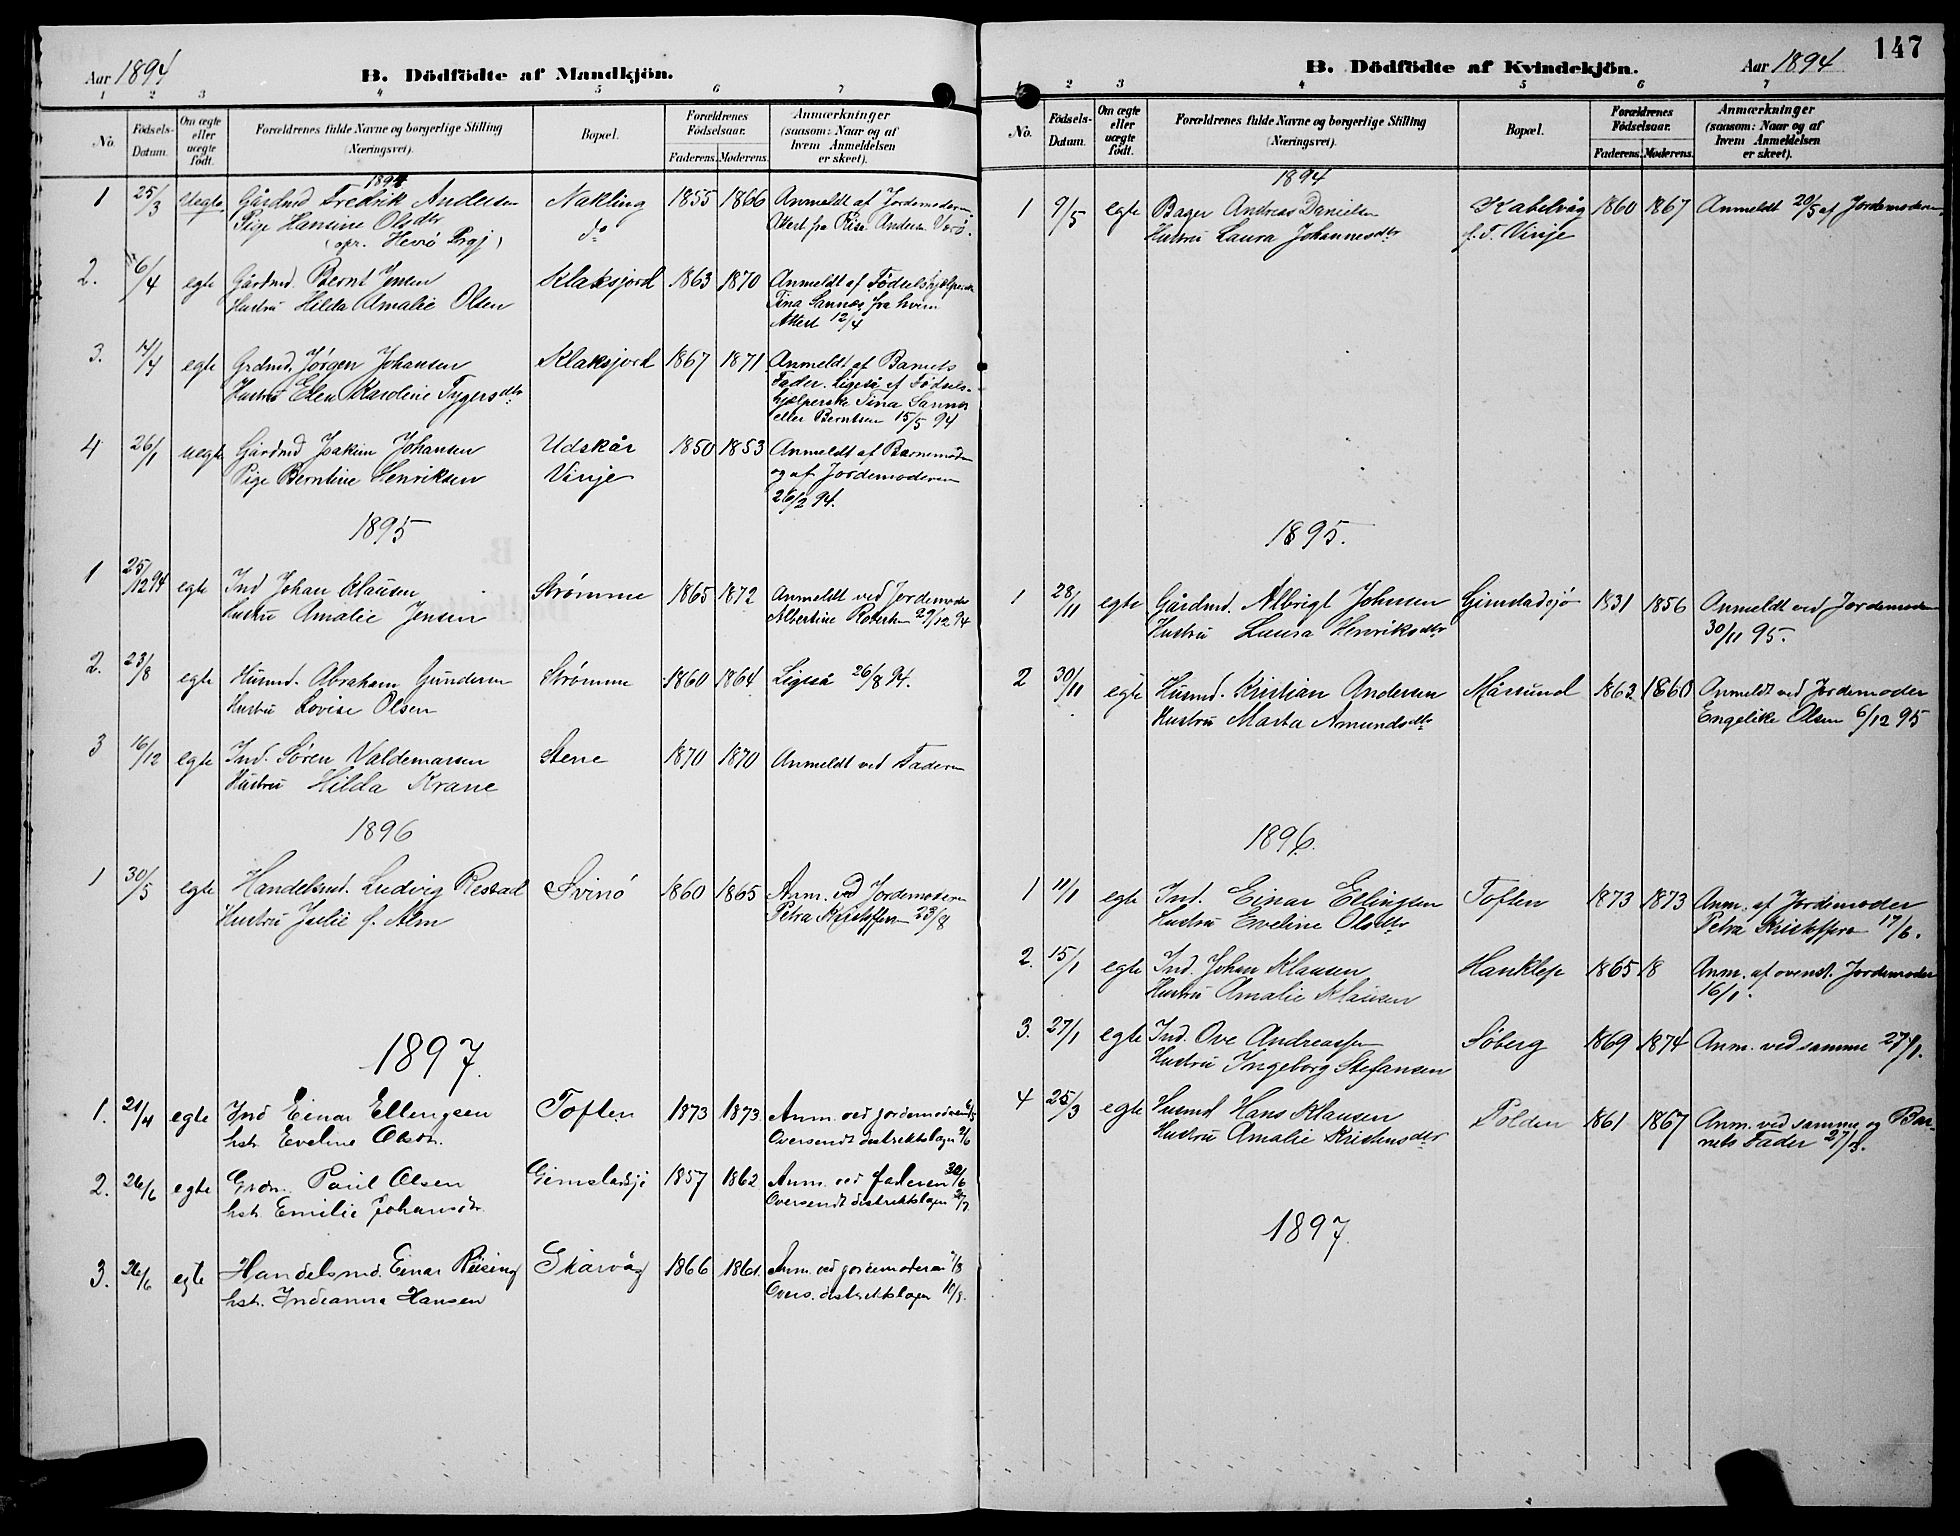 Aar 1894
B. Dödfödte af Mandkjön.
1 2 3 4 5 6 7
No.
Födsels-Datum.
Om ægte eller uægte födt.
Forældrenes fulde Navne og borgerlige Stilling (Næringsvei).
Bopæl.
Forældrenes Födselsaar.
Faderens. Moderens.
Anmærkninger (saasom: Naar og af hvem Anmeldelsen er skeet).
1894
1 25/3 Uegte Gårdmd Fredrik Andersen Nakling 1855 1866 Anmeldt af Jordemoderen.
Pige Hansine Olsdtr do Attest fra Andersen Værø.
2. 6/4 egte Gårdmd. Bernt Jensen Klaksjord 1863 1870 Anmeldt af Fødselshjælperske
Hustru Hilda Amalie Olsen Tina Sannes fra hvem
Attest 12/4
3. egte Grdmd. Jørgen Johansen Klaksjord 1867 1871 Anmeldt af Barnets
Hustru Elen Karoline Tygersdtr Fader. Ligeså af Fødsels-
hjælperske Tina Sannes
eller Berntsen 15/5 94
4 26/1 uegte Gårdmd Joakim Johansen Udskår 1850 1853 Anmeldt af Barnemoder
Pige Berntine Henriksen Vinje og af Jordemoderen
26/2 94.
1895
1 25/12 94 egte Ind Johan Klausen Strømme 1865 1872 Anmeldt ved Jordemoder
Hustru Amalie Jensen Albertine 29/12 94
2. 23/8 egte Husmd. Abraham Gundersen Strømme 1860 1864 Ligeså 26/8 94.
Hustru Lovise Olsen
3 16/12 egte Ind. Søren Valdemarsen Stene 1870 1870 Anmeldt ved Faderen
Hustru Hilda Krane
1896
1 30/5 egte Handelsmd. Ludvig Restad Svinø 1860 1865 Anm. ved Jordemoderen
Hustru Julie f. Alm Petra Kristoffersen 23/8
1897.
1. 21/4 egte Ind Einar Ellingsen Toften 1873 1873 Anm. ved jordemoderen
hstr. Eveline Olsdtr. Oversendt distriktslægen
2. 26/6 egte Grdm. Paul Olsen Gimstadsjø 1857 1862 Anm. ved faderen 30/6
hstr. Emilie Johansdtr. Oversendt distriktslægen
3. 26/6 egte Handelsmd. Einar Reising Skårvåg 1866 1861 Anm. ved jordemoderen
hstr. Indianna Hansen Overs. distriktslægen 10/8.
147
B. Dödfödte af Kvindekjön.
Aar 1894
1 2 3 4 5 6 7
No.
Födsels-Datum.
Om ægte eller uægte födt.
Forældrenes fulde Navne og borgerlige Stilling (Næringsvei).
Bopæl.
Forældrenes Födselsaar.
Faderens. Moderens.
Anmærkninger (saasom: Naar og af hvem Anmeldelsen er skeet).
1894
1 9/5 egte Bager Andreas Danielsen Kabelvåg 1860 1867 Anmeldt 20/5 af Jordemoderen.
Hustru Laura Johannesdtr f. T. Vinje
1895.
1 28/11 egte Gårdmd. Albrigt Johnsen Gimstadsjø 1831 1856 Anmeldt ved Jordemoder
Hustru Laura Henriksdtr 30/11 95.
2 30/11 egte Husmd. Kristian Andersen Målsund 1863 1860 Anmeldt ved Jordemoder
Hustru Marta Amundsdtr Engelike Olsen 6/12 95
1896.
1 11/1 egte Ind. Einar Ellingsen Toften 1873 1873 Anm. af Jordemoder
Hustru Eveline Olsdtr Petra Kristoffersen 17/6.
2. 15/1 egte Ind. Johan Klausen 1865 18 Anm. af ovenst. Jordemoder
Hustru Amalie Klausen 16/1.
3. 27/1 egte Ind. Ove Andreassen Søberg 1869 1874 Anm. ved samme 27/1.
Hustru Ingeborg Stefansen
4 25/3 egte Husmd Hans Klausen Polden 1861 1867 Anm. ved samme og Bar-
Hustru Amalie Kristensdtr nets Fader 27/3.
1897.